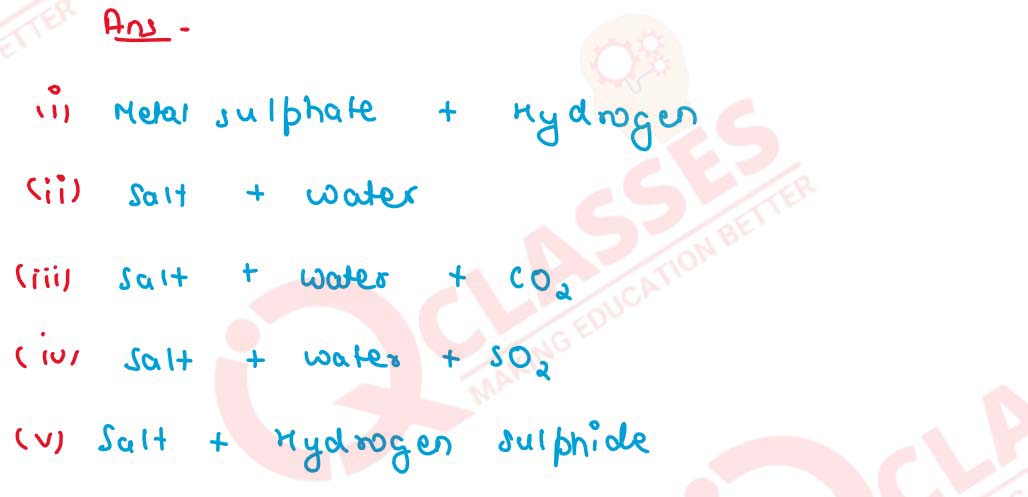 Ans -
(i) Metal sulphate + Hydrogen
(ii) Salt + water
(iii) Salt + water + CO₂
(iv) Salt + water + SO₂
(v) Salt + Hydrogen sulphide
ETTER
CLASSES
MAKING EDUCATION BETTER
CLA